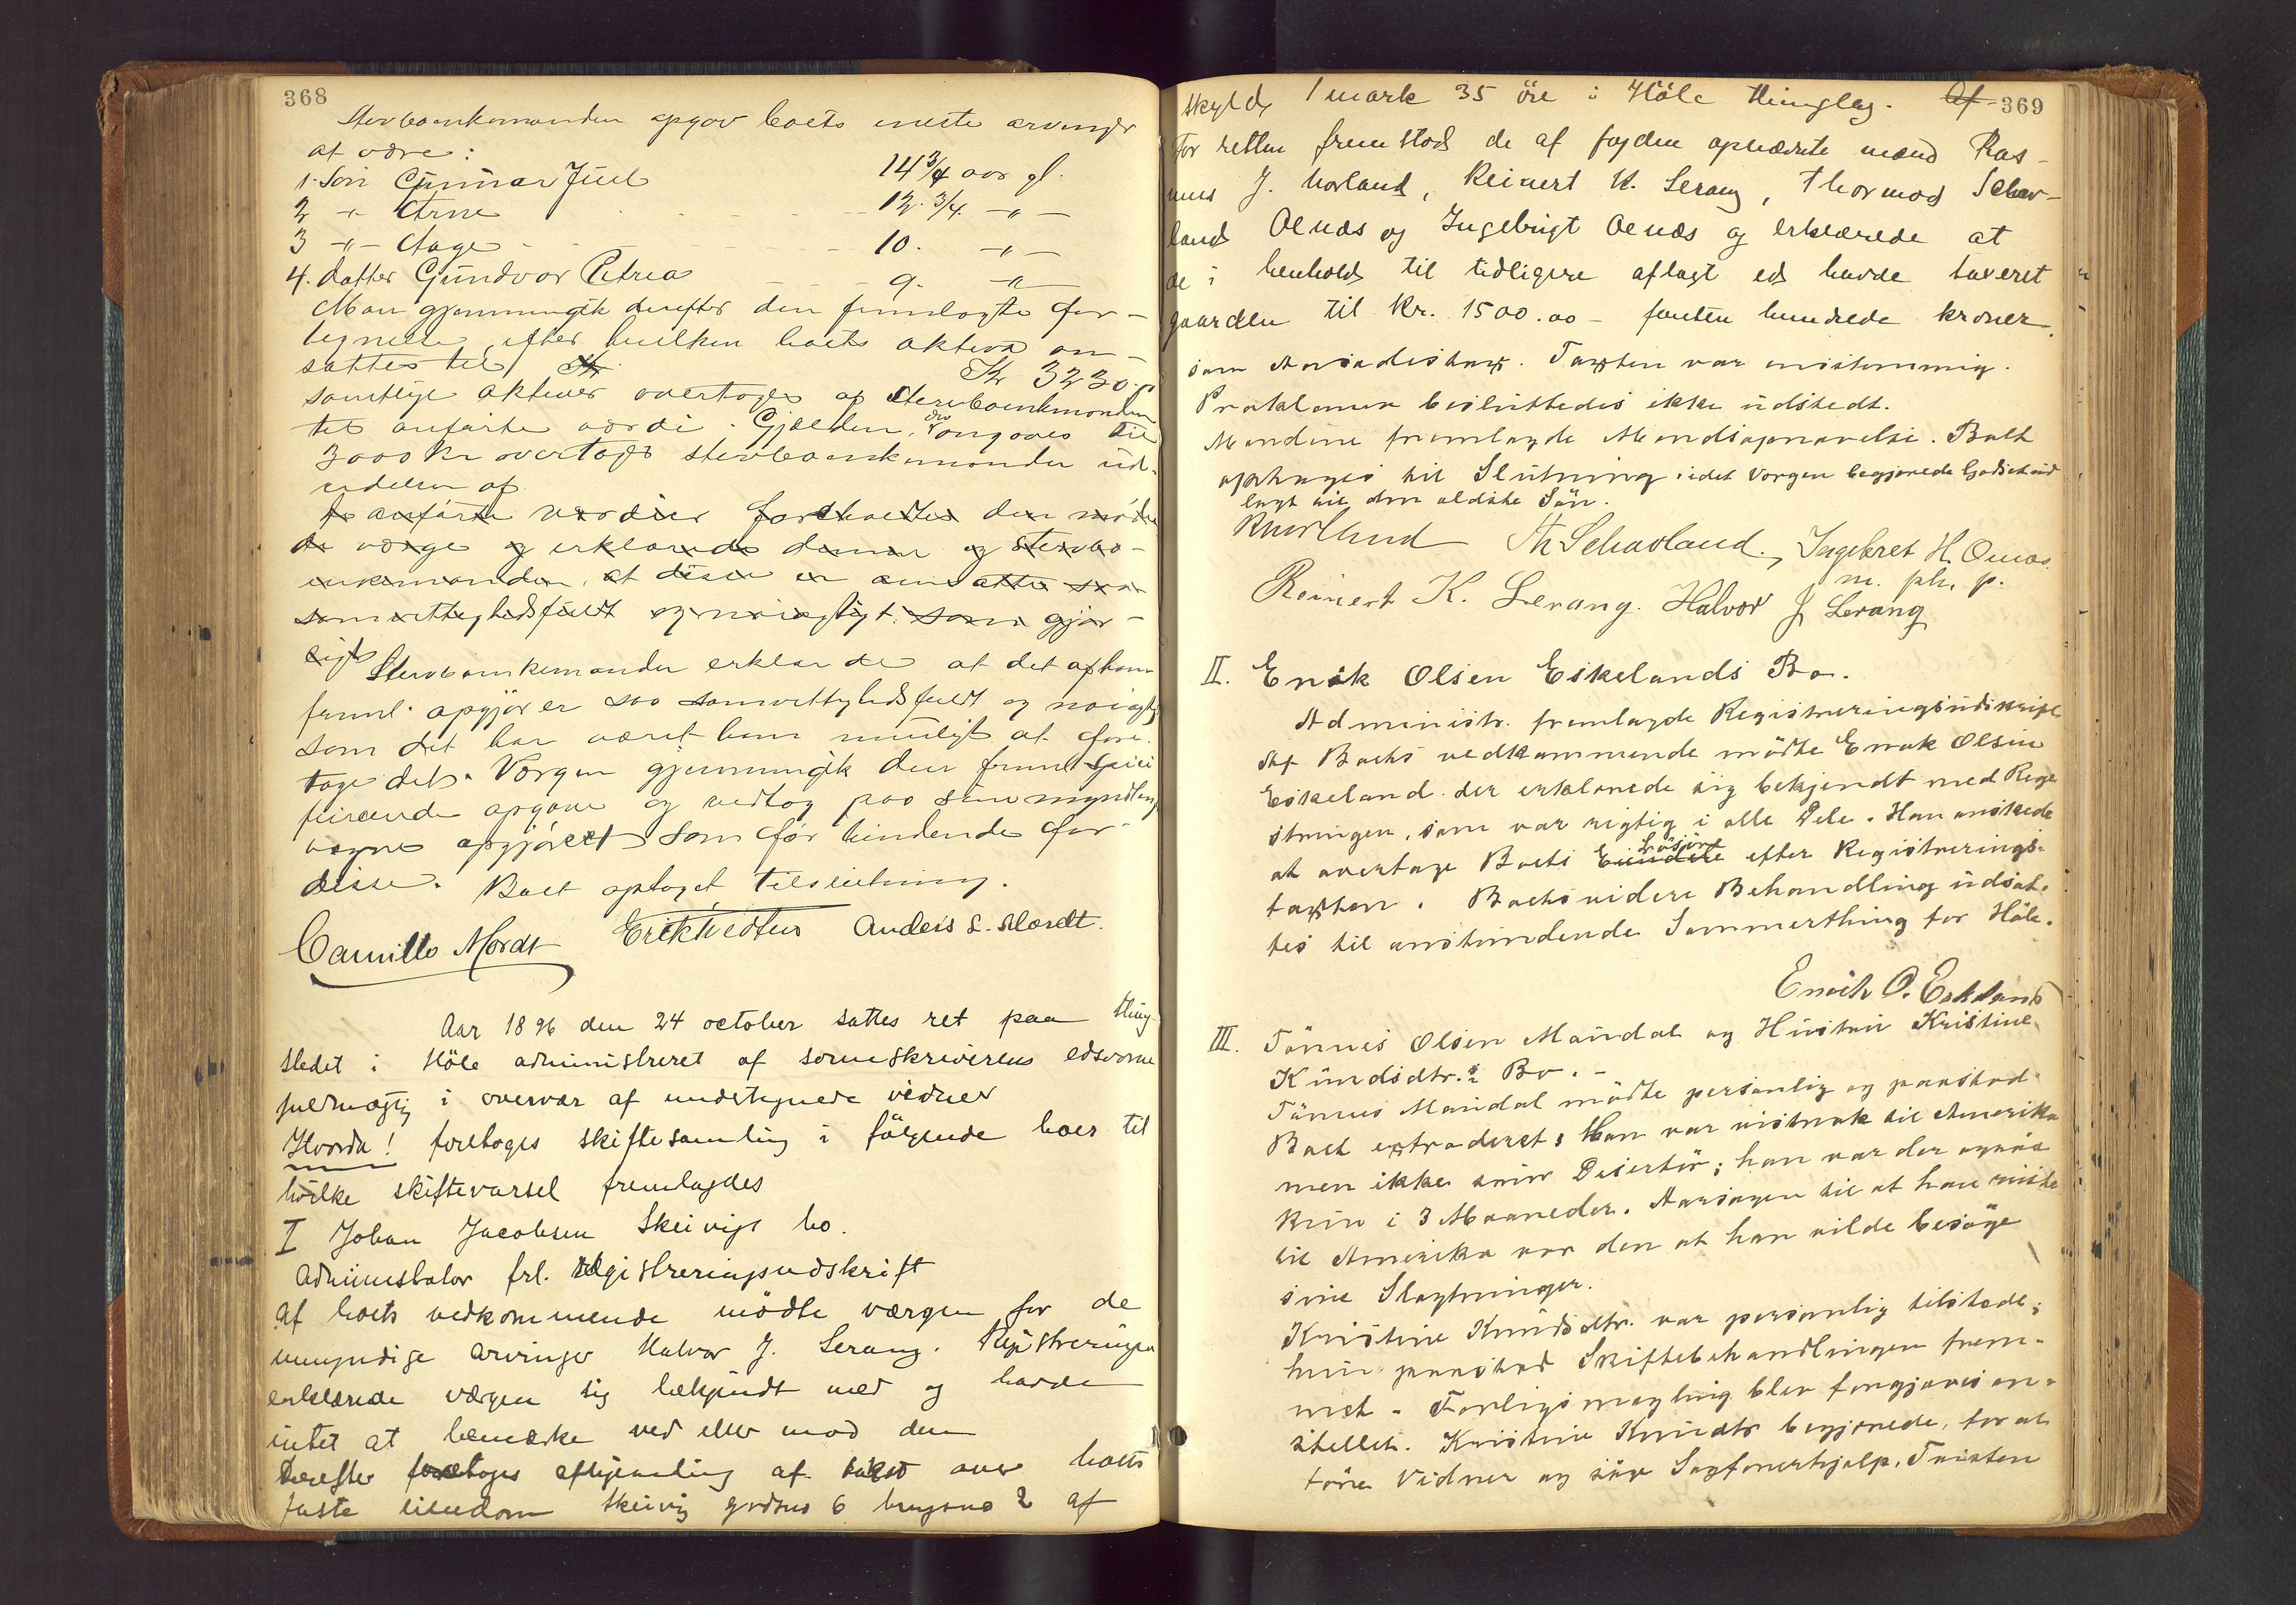 368
Stervboenkemanden opgav boets eneste arvinger
at være:
1. Søn Gunnar Juel 14 3/4 aar gl.
2 -"- Arne 12 3/4 -"-
3 -"- Aage 10. -"-
4. datter Gundvor Petrea 9. -"-
Man gjennemgik derefter den fremlagte for-
tegnelse, efter hvilken boets aktiva an-
sattes til Kr Kr 3230.
samtlige aktiver overtoges af Stervboenkemanden
til anførte værdi. Gjælden, der angaves til
3000 Kr overtoges stervboenkemanden ud-
redelsen af
de anførte værdier foreholdtes den møden
de værge og erklærede denne og stervbo-
enkemanden, at disse er ansatte saa
samvittighedsfuldt og nøiagtigt som gjør-
ligt
Stervboenkemanden erklærede at det af ham
freml. opgjør er saa samvittighedsfuldt og nøiagtig
som det har været ham muligt at fore-
tage det. Værgen gjennemgik den freml. speci
ficerende opgave og vedtog paa sine myndlings
vegne opgjøret som før bindende for
disse. Boet optoget til slutning.
Camillo Mordt Erik Anders S. Mordt.
Aar 1896 den 24 october sattes ret paa thing-
stedet i Höle administreret af sorenskriverens edsvorne
fuldmægtig i overvær af undertegnede vidner
Hvorda! foretoges skiftesamling i följende boer til
hvilke skiftevarsel fremlagdes
I Johan Jacobsen Skeivigs bo.
Administrator frl. registreringsudskrift
Af boets vedkommende mödte værgen for de
umyndige arvinger Halvor J. Lerang. Registreringen
erklærede værgen sig bekjendt med og havde
intet at bemærke ved eller mod den
Derefter foretoges afhjemling af takst over boets
faste eiendom Skeivig gardsno 6 brugsno 2 af
369
skyld 1 mark 35 öre i Höle thinglag. Af
For retten fremstod de af fogden opnævnte mænd Ras-
mus J. Norland, Reinert K. Lerang, Thormod Schav-
land Oenæs og Ingebrigt Oenæs og erklærede at
de i henhold til tidligere aflagt ed havde taxeret
gaarden til Kr. 1500.00 - femten hundrede kroner
som Aasædestaxt. Taxten var enstemmig.
Proklama besluttedes ikke udstedt.
Mændene fremlagde Mandsopnævnelse. Boet
optages til Slutning idet Værgen begjærede Godset ud
lagt til den ældste Sön.
Th Schavland. Ingebret H. Oenæs
m. ph. p.
Reinert K. Lerang. Halvor J Lerang
II. Enok Olsen Eskelands Bo.
Administr. fremlagde Registreringsudskrift
Af Boets vedkommende mödte Enok Olsen
Eskeland der erklærede sig bekjendt med Regi
streringen, som var rigtig i alle Dele. Han önskede
at overtage Boets Eiendele Lösöre efter Registrerings-
taxten. Boets videre Behandling udsat-
tes til anstundende Sommerthing for Höle.
Enok O. Eskeland
III. Tönnes Olsen Mandal og Hustru Kristine
Knudsdtr.s Bo. -
Tönnes Mandal mödte personlig og paastod
Boet extraderet; Han var vistnok til Amerika
men ikke som Desertör; han var der ogsaa
kun i 3 Maaneder. Aarsagen til at han reiste
til Amerika var den at han vilde besöge
sine Slægtninger.
Kristine Knudsdtr. var personlig tilstede;
hun paastod Skiftebehandlingen frem-
met. Forligsmægling blev forgjæves an-
stillet. Kristine Knudsdtr begjærede, for at
före Vidner og söge Sagförerhjælp, Tvisten